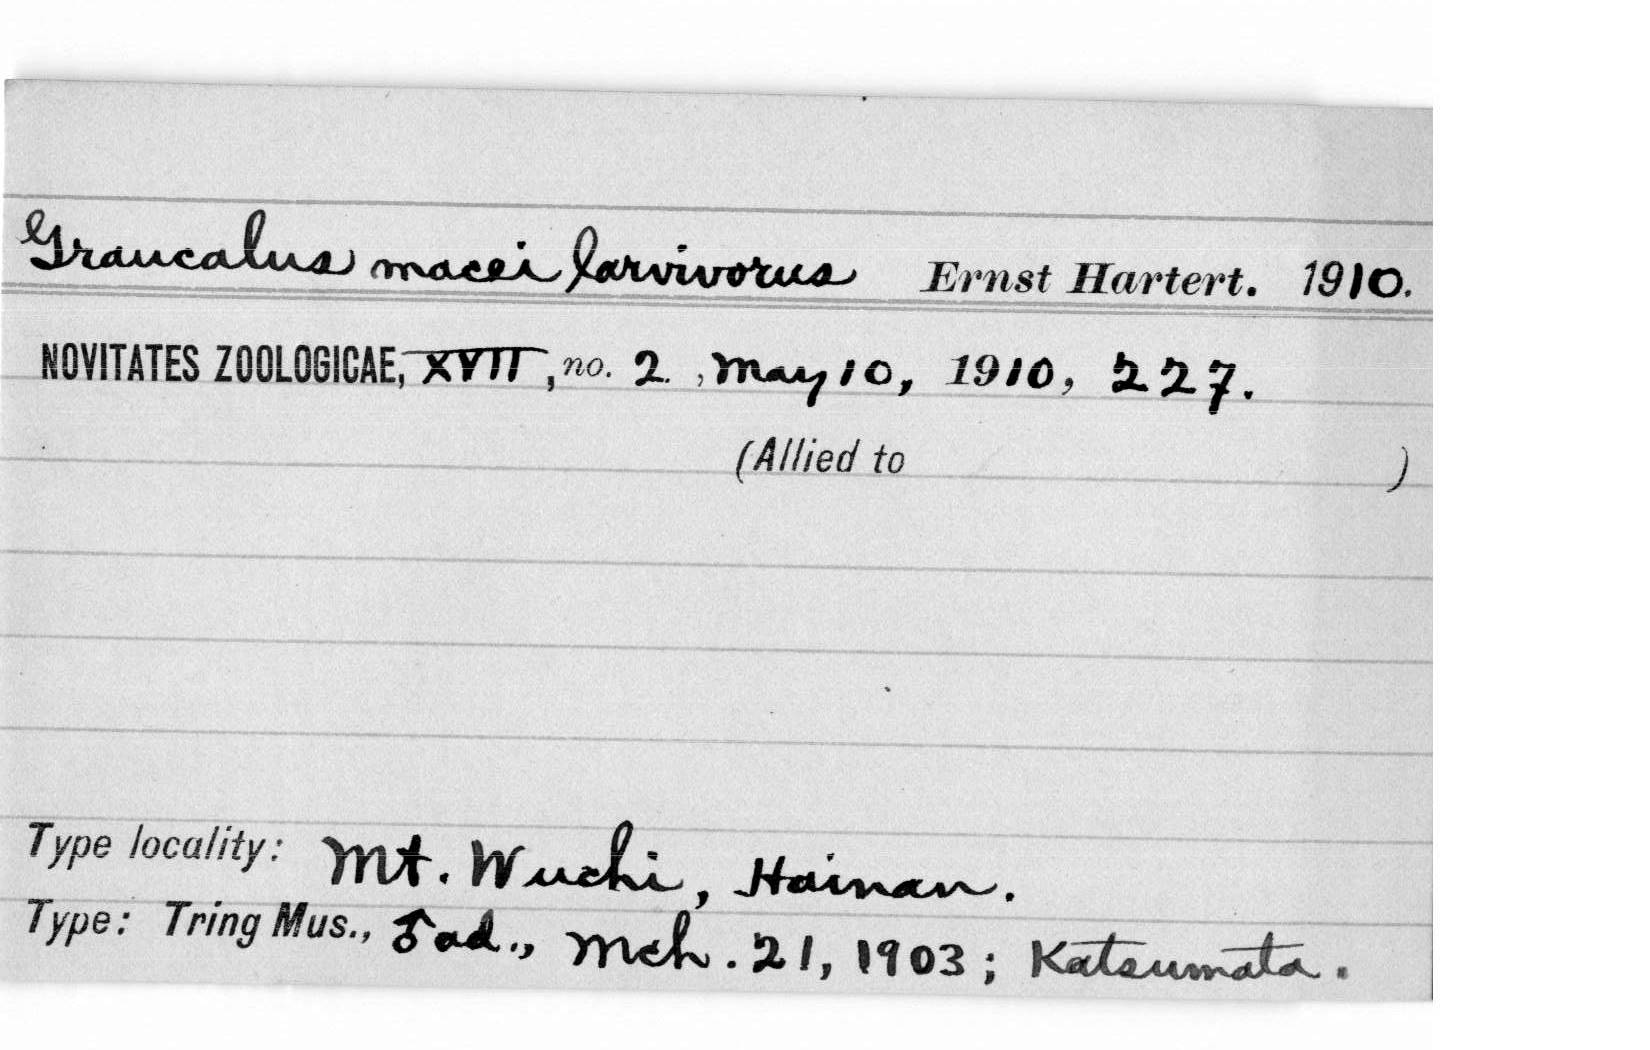 Graucalus macei larvivorus Ernst Hartert. 1910.
NOVITATES ZOOLOGICAE, XVII, no. 2, May 10, 1910, 227.
(Allied to )
Type locality: Mt. Wuchi, Hainan.
Type: Tring Mus., ♂ ad., Mch. 21, 1903; Katsumata.